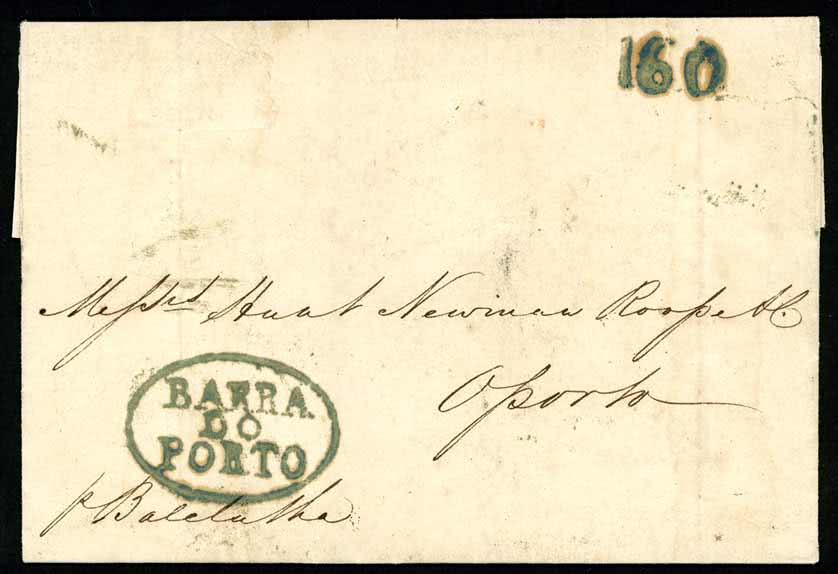 160
Messrs Hunt Newman Roope & Co
Oporto
BARRA
DO
PORTO
p Balclutha